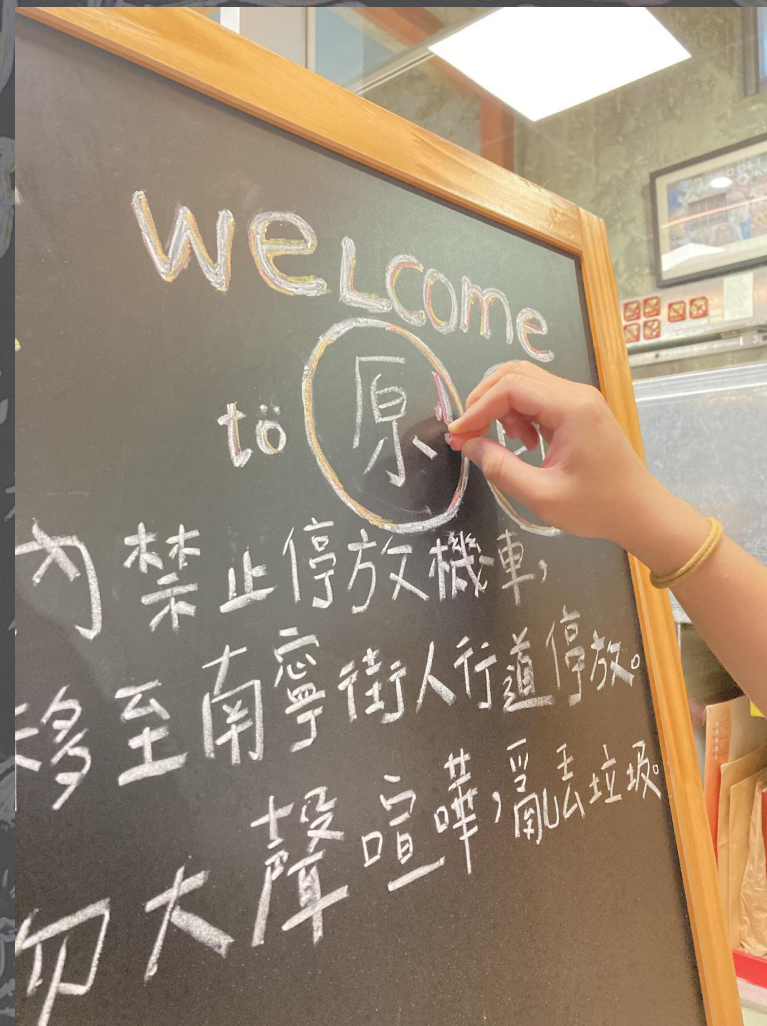 WeLcome
to 原
內禁止停放機車,
移至南寧街人行道停放。
勿大聲喧嘩,亂丟垃圾。